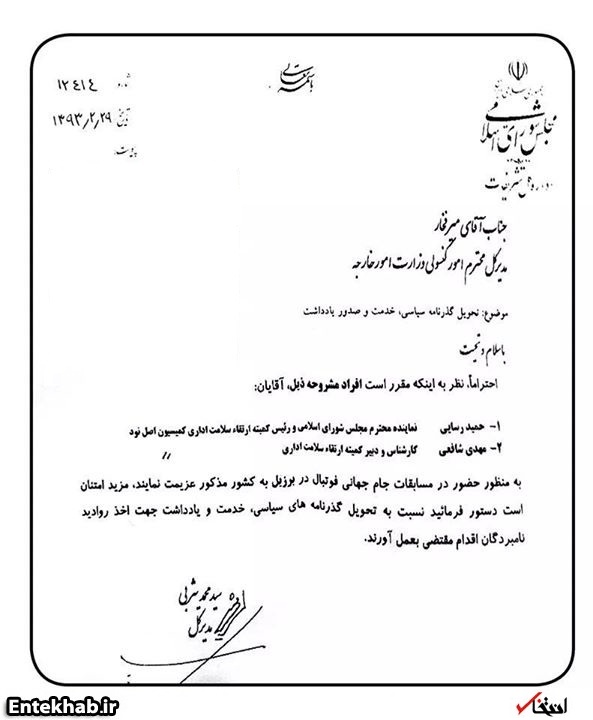 باسمه تعالی
جمهوری اسلامی ایران
مجلس شورای اسلامی
اداره کل تشریفات
شماره ۱۲۴۱۴
تاریخ ۱۳۹۳/۲/۲۹
پیوست
جناب آقای میرفخار
مدیرکل محترم امور کنسولی وزارت امور خارجه
موضوع: تحویل گذرنامه سیاسی، خدمت و صدور یادداشت
با سلام و تحیت
احتراماً، نظر به اینکه مقرر است افراد مشروحه ذیل، آقایان:
۱- حمید رسایی نماینده محترم مجلس شورای اسلامی و رئیس کمیته ارتقاء سلامت اداری کمیسیون اصل نود
۲- مهدی شافعی کارشناس و دبیر کمیته ارتقاء سلامت اداری //
به منظور حضور در مسابقات جام جهانی فوتبال در برزیل به کشور مذکور عزیمت نمایند، مزید امتنان
است دستور فرمائید نسبت به تحویل گذرنامه های سیاسی، خدمت و یادداشت جهت اخذ روادید
نامبردگان اقدام مقتضی بعمل آورند.
سید محمد یثربی
مدیرکل
Entekhab.ir
انتخاب